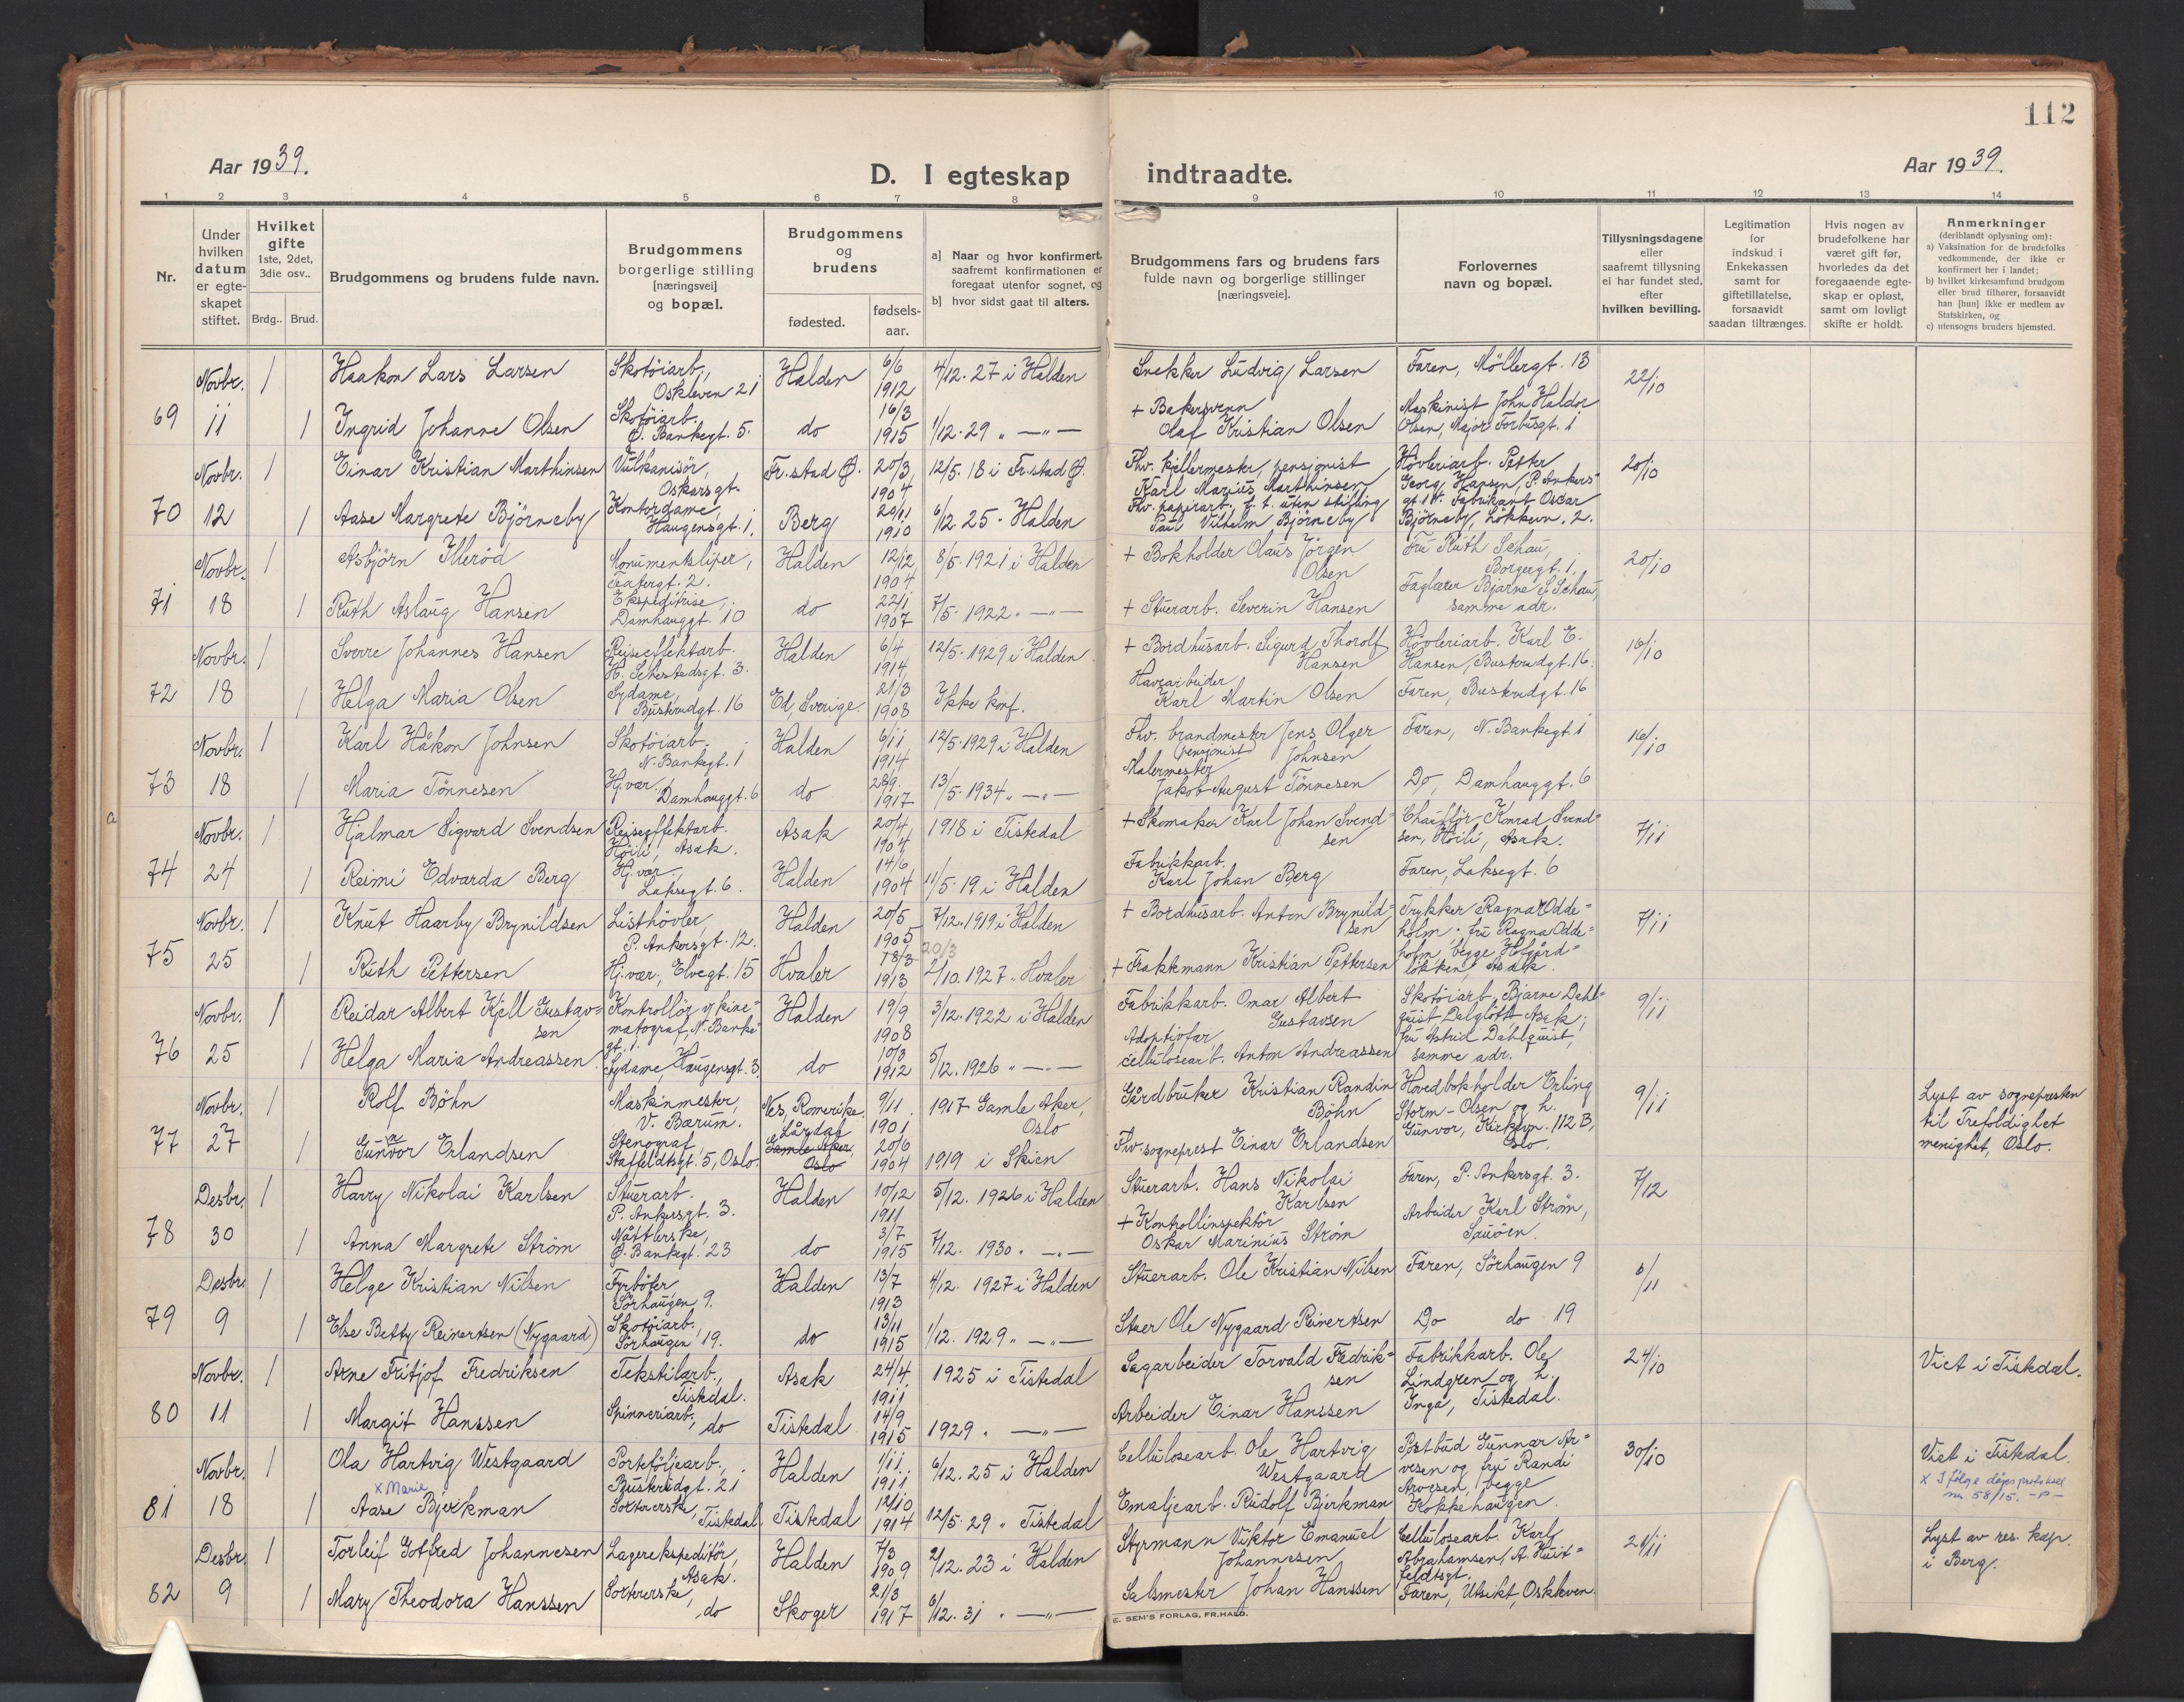 112
Aar 1939.
D. I egteskap
indtraadte.
Aar 1939.
1 2 3 4 5 6 7 8 9 10 11 12 13 14
Nr.
Under hvilken datum er egteskapet stiftet.
Hvilket gifte 1ste, 2det, 3die osv..
Brdg.. Brud.
Brudgommens og brudens fulde navn.
Brudgommens borgerlige stilling [næringsvei] og bopæl.
Brudgommens og brudens
fødested.
fødsels-aar.
a] Naar og hvor konfirmert, saafremt konfirmationen er foregaat utenfor sognet, og
b] hvor sidst gaat til alters.
Brudgommens fars og brudens fars fulde navn og borgerlige stillinger [næringsveie].
Forlovernes navn og bopæl.
Tillysningsdagene eller saafremt tillysning ei har fundet sted, efter hvilken bevilling.
Legitimation for indskud i Enkekassen samt for giftetillatelse, forsaavidt saadan tiltrænges.
Hvis nogen av brudefolkene har været gift før, hvorledes da det foregaaende egteskap er opløst, samt om lovligt skifte er holdt.
Anmerkninger
(deriblandt oplysning om):
a) Vaksination for de brudefolks vedkommende, der ikke er konfirmert her i landet;
b) hvilket kirkesamfund brudgom eller brud tilhører, forsaavidt han [hun] ikke er medlem av Statskirken, og
c) utensogns bruders hjemsted.
Novbr. 1 Haakon Lars Larsen Skotöiarb., Oskleven 21 Halden 6/6 1912 4/12. 27 i Halden Snekker Ludvig Larsen Faren, Möllergt. 13 22/10
69 11 1 Ingrid Johanne Olsen Skotöiarb. Ö. Bankegt. 5. do 16/3 1915 1/12. 29 " —"— + Bakersvenn Olaf Kristian Olsen Maskinist John Haldor Olsen, Major Forbusgt. 1
Novbr. 1 Einar Kristian Marthinsen Vulkanisör, Oskarsgt. Fr.stad Ø. 20/3 1904 12/5. 18 i Fr.stad Ø. Fhv. kjellermester, pensjonist Karl Marius Marthinsen Hövleriarb. Petter Georg Hansen, P. Ankersgt. 20/10
70 12 1 Aase Margrete Björneby Kontordame, Haugensgt. 1. Berg 20/11 1910 6/12. 25 " Halden Fhv. papirarb., f. t. uten stilling Paul Vilhelm Björneby Fabrikant Oscar Björneby, Lökkevn. 2.
Novbr. 1 Asbjörn Illeröd Monumentsliper, Teatergt. 2. Halden 12/12 1904 8/5. 1921 i Halden + Bokholder Olaus Jörgen Olsen Fru Ruth Schau, Borgergt. 1, 20/10
71 18 1 Ruth Aslaug Hansen Ekspeditrise, Damhauggt. 10 do 22/1 1907 7/5. 1922 " —"— + Stuerarb. Severin Hansen Faglærer Bjarne Schau, samme adr.
Novbr. 1 Sverre Johannes Hansen Reiseeffektarb. H. Sehestedsgt. 3. Halden 6/4 1914 12/5. 1929 i Halden + Bordhusarb. Sigurd Thorolf Hansen Hövleriarb. Karl E. Hansen, Buskrudgt. 16. 16/10
72 18 1 Helga Maria Olsen Sydame, Buskrudgt. 16 Ed, Sverige. 21/3 1908 Ikke konf. Havearbeider Karl Martin Olsen Faren, Buskrudgt. 16
Novbr. 1 Karl Håkon Johnsen Skotöiarb. N. Bankegt. 1 Halden 6/11 1914 12/5. 1929 i Halden Fhv. brandmester Jens Olger Johnsen (pensjonist) Faren, N. Bankegt. 1 16/10
73 18 1 Maria Tönnesen Hj. vær. Damhauggt. 6 do 28/9. 1917 13/5. 1934 " —"— Malermester Jakob August Tönnesen Do, Damhauggt. 6
Novbr. 1 Hjalmar Sigvard Svendsen Reiseeffektarb. Höili, Asak. Asak 20/4 1904 1918 i Tistedal + Skomaker Karl Johan Svendsen Chaufför Konrad Svendsen, Höili, Asak. 7/11
74 24 1 Reimi Edvarda Berg Hj. vær. Laksegt. 6. Halden 14/6 1904 11/5. 19 i Halden Fabrikkarb. Karl Johan Berg Faren, Laksegt. 6
Novbr. 1 Knut Haarby Brynildsen Listhövler, P. Ankersgt. 12. Halden 20/5 1905 7/12. 1919 i Halden + Bordhusarb. Anton Brynildsen Trykker Ragnar Oddeholm. fru Ragna Oddeholm, begge Holgårdlökken, Asak. 7/11
75 25 1 Ruth Pettersen Hj. vær, Elvegt. 15 Hvaler 18/3 20/3 1913 2/10. 1927 " Hvaler + Fraktmann Kristian Pettersen
Novbr. 1 Reidar Albert Kjell Gustavsen Kontrollör v/ kinematograf, N. Bankegt. 1. Halden 19/9 1908 3/12. 1922 i Halden Fabrikkarb. Omar Albert Gustavsen Skotöiarb. Bjarne Dahlquist Dalglött Asak; fru Astrid Dahlquist, samme adr. 9/11
76 25 1 Helga Maria Andreassen Sydame, Haugensgt. 3. do 10/3 1912 5/12. 1926 " —"— Adoptivfar, cellulosearb. Anton Andreassen
Novbr. 1 Rolf Böhn Maskinmester, V. Bærum. Nes, Romerike. 9/11 1901 1917 Gamle Aker, Oslo Gårdbruker Kristian Randin Böhn Hovedbokholder Erling Storm-Olsen og h. Gunvor, Kirkevn. 112 B, Oslo. 9/11 Lyst av sognepresten til Trefoldighet menighet, Oslo.
77 27 1 Gunvor Erlandsen Stenograf, Staffeldtsgt. 5, Oslo. Lårdal Gamle Aker, Oslo 20/6 1904 1919 i Skien Fhv. sogneprest Einar Erlandsen
Desbr. 1 Harry Nikolai Karlsen Stuerarb. P. Ankersgt. 3. Halden 10/12 1911 5/12. 1926 i Halden Stuerarb. Hans Nikolai Karlsen Faren, P. Ankersgt. 3. 7/12
78 30 1 Anna Margrete Ström Nåtlerske, Ö. Bankegt. 23 do 3/7 1915 7/12. 1930 " —"— + Kontrollinspektör Oskar Marinius Ström Arbeider Karl Ström, Sauöen.
Desbr. 1 Helge Kristian Nilsen Fyrböter Sörhaugen 9. Halden 13/7 1913 4/12. 1927 i Halden Stuerarb. Ole Kristian Nilsen Faren, Sörhaugen 9 6/11
79 9 1 Else Betty Reinertsen (Nygaard) Skotöiarb., Sörhaugen 19. do 13/11 1915 1/12. 1929 " —"— Stuer Ole Nygaard Reinertsen Do do 19
Novbr. 1 Arne Fritjof Fredriksen Tekstilarb., Tistedal. Asak 24/4. 1911 1925 i Tistedal Sagarbeider Torvald Fredriksen Fabrikkarb. Ole Lindgren og h. Inga, Tistedal. 24/10 Viet i Tistedal.
80 11 1 Margit Hanssen Spinneriarb., do Tistedal 14/9 1915 1929 " —"— Arbeider Einar Hanssen
Novbr. 1 Ola Hartvig Westgaard Porteföljearb., Buskrudgt. 21 Halden 1/11 1911 6/12. 25 i Halden Cellulosearb. Ole Hartvig Westgaard Postbud Gunnar Arvesen og fru Randi Arvesen, begge Kokkehaugen. 30/10 Viet i Tistedal.
x Marie
x I fölge dåpsprotokoll nr. 58/15.
81 18 1 Aase Bjerkman Sorterersk, Tistedal. Tistedal 12/10 1914 12/5. 29 " Tistedal Emaljearb. Rudolf Bjerkman
Desbr. 1 Torleif Gotfred Johannesen Lagerekspeditör, Asak. Halden 7/3 1909 2/12. 23 i Halden Styrmann Viktor Emanuel Johannesen Cellulosearb. Karl Abrahamsen, A. Huitfeldtsgt. 21/11 Lyst av res. kap. i Berg.
82 9 1 Mary Theodora Hanssen Sorterersk, do Skoger 21/3 1917 6/12. 31 " —"— Salsmester Johan Hanssen Faren, Utsikt, Oskleven.
E. SEM'S FORLAG, FR.HALD.